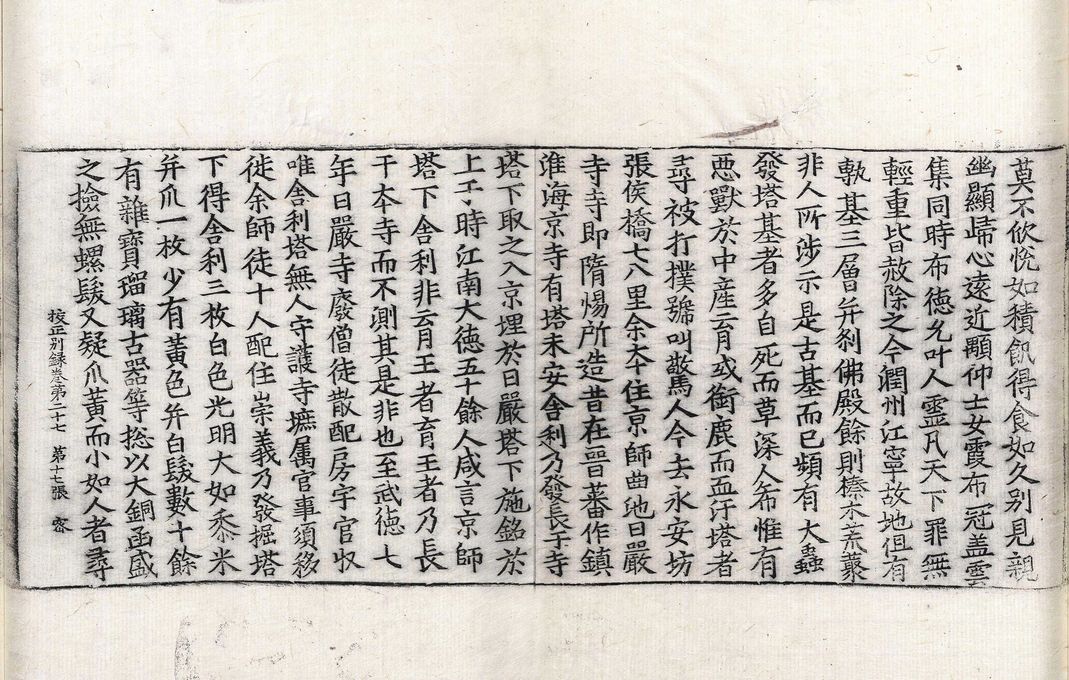 莫不欣悅如積飢得食如久別見親
幽顯歸心遠近顒仰士女霞布冠盖雲
集同時布德允叶人靈凡天下罪無
輕重皆赦除之今潤州江寧故地但有
塼基三層并剎佛殿餘則榛木荒藂
非人所涉示是古基而已頻有大蟲
發塔基者多自死而草深人希惟有
惡獸於中産育或銜鹿而血汙塔者
尋被打撲號叫驚人今去永安坊
張侯橋七八里余本住京師曲池日嚴
寺寺即隋煬所造昔在晉蕃作鎮
淮海京寺有塔未安舍利乃發長干寺
塔下取之入京埋於日嚴塔下施銘於
上于時江南大德五十餘人咸言京師
塔下舍利非育王者育王者乃長
干本寺而不測其是非也至武德七
年日嚴寺廢僧徒散配房宇官収
唯舍利塔無人守護寺㕓属官事須移
徙余師徒十人配住崇義乃發掘塔
下得舍利三枚白色光明大如黍米
并爪一枚少有黃色并白髮數十餘
有雜寶瑠璃古器等捴以大銅函盛
之撿無螺髮又疑爪黃而小如人者尋
挍正別録卷第二十七 第十七張 密